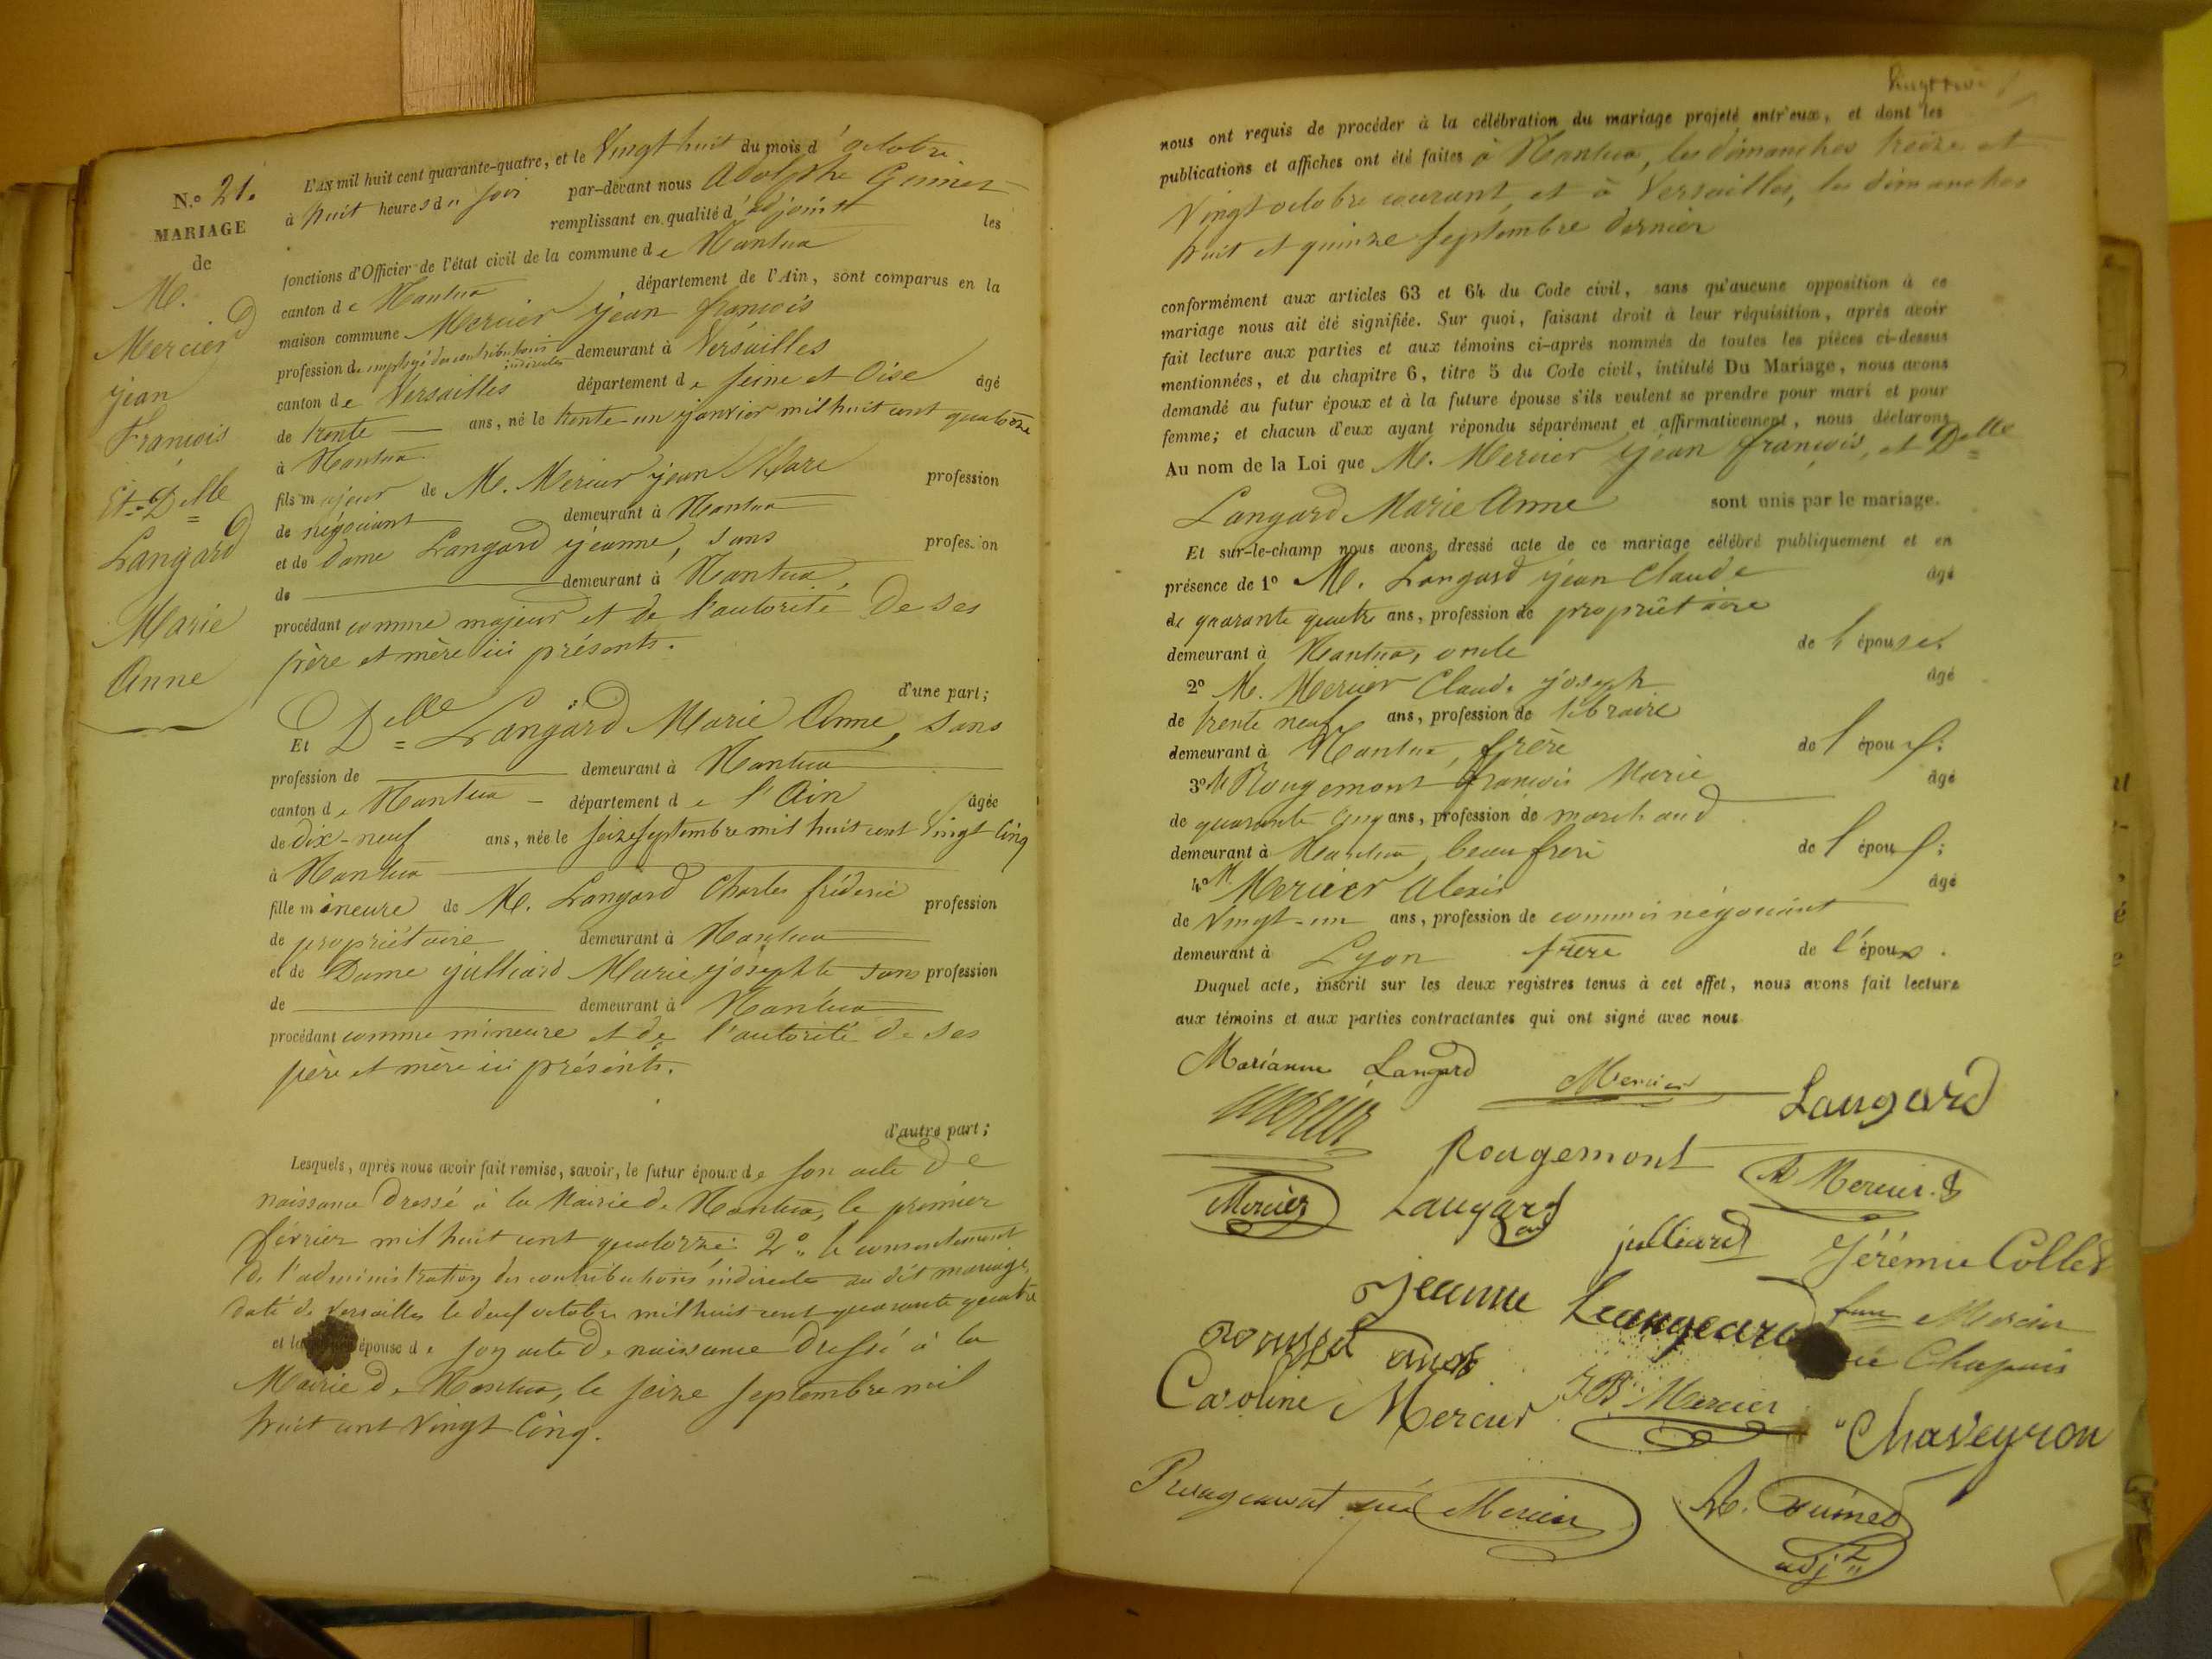 N.º 21.
MARIAGE
de
M.
Mercier
jean
François
Et Delle
Langard
Marie
Anne
L'AN mil huit cent quarante-quatre, et le Vingt huit du mois d'octobre
à huit heures du soir par-devant nous Adolphe
remplissant en qualité d'adjoint les
fonctions d'Officier de l'état civil de la commune de Nantua
canton de Nantua département de l'Ain, sont comparus en la
maison commune Mercier jean françois
profession d'employé des contributions indirectes demeurant à Versailles
canton de Versailles département de Seine et Oise âgé
de trente ans, né le trente-un janvier mil huit cent quatorze
à Nantua
fils majeur de M. Mercier jean Marc profession
de négociant demeurant à Nantua
et de dame Langard jeanne, sans profession
de demeurant à Nantua,
procédant comme majeur et de l'autorité de ses
père et mère ici présents.
d'une part;
Et Delle Langard Marie Anne, sans
profession de demeurant à Nantua
canton de Nantua département de l'Ain âgée
de dix-neuf ans, née le seize septembre mil huit cent Vingt Cinq
à Nantua
fille mineure de M. Langard Charles fréderic profession
de propriétaire demeurant à Nantua
et de Dame julliard Marie josephte sans profession
de demeurant à Nantua
procédant comme mineure et de l'autorité de ses
père et mère ici présents.
d'autre part;
Lesquels, après nous avoir fait remise, savoir, le futur époux de son acte de
naissance dressé à la Mairie de Nantua, le premier
février mil huit cent quatorze; 2º le consentement
de l'administration des contributions indirectes au dit mariage,
daté de Versailles le deux octobre mil huit cent quarante quatre
et la épouse de son acte de naissance dressé à la
Mairie de Nantua, le seize septembre mil
huit cent Vingt Cinq.
nous ont requis de procéder à la célébration du mariage projeté entr'eux, et dont les
publications et affiches ont été faites à Nantua, les dimanches treize et
Vingt octobre courant, et à Versailles, les dimanches
huit et quinze septembre dernier
conformément aux articles 63 et 64 du Code civil, sans qu'aucune opposition à ce
mariage nous ait été signifiée. Sur quoi, faisant droit à leur réquisition, après avoir
fait lecture aux parties et aux témoins ci-après nommés de toutes les pièces ci-dessus
mentionnées, et du chapitre 6, titre 5 du Code civil, intitulé Du Mariage, nous avons
demandé au futur époux et à la future épouse s'ils veulent se prendre pour mari et pour
femme; et chacun d'eux ayant répondu séparément et affirmativement, nous déclarons
Au nom de la Loi que M. Mercier jean françois, et Delle
Langard Marie Anne sont unis par le mariage.
Et sur-le-champ nous avons dressé acte de ce mariage célébré publiquement et en
présence de 1º M. Langard jean Claude âgé
de quarante quatre ans, profession de propriétaire
demeurant à Nantua, oncle de l'épouse.
2º M. Mercier Claude joseph âgé
de trente neuf ans, profession de libraire
demeurant à Nantua, frère de l'époux;
3º M. Rougemont françois Marie âgé
de quarante cinq ans, profession de marchand
demeurant à Nantua, beau frère de l'époux;
4º M. Mercier Alexis âgé
de Vingt-un ans, profession de commis négociant
demeurant à Lyon frère de l'époux.
Duquel acte, inscrit sur les deux registres tenus à cet effet, nous avons fait lecture
aux témoins et aux parties contractantes qui ont signé avec nous.
Marianne Langard Mercier Langard
Mercier
Rougemont Mercier
Mercier Langard julliard Jérémie Collet
jeanne Langard Mercier
Chapuis
Caroline Mercier J.B. Mercier Chaveyron
Rougemont née Mercier
adjt